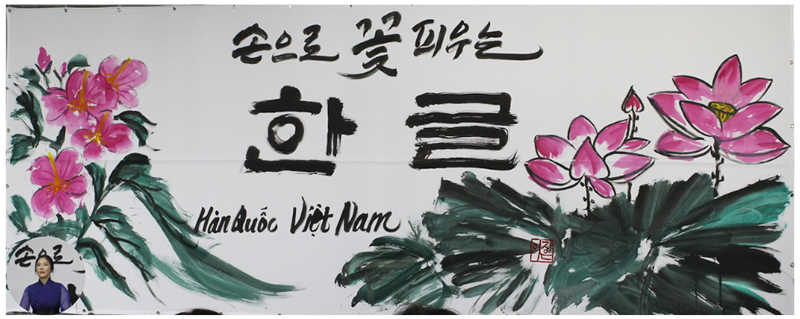 손으로 꽃 피우는
한글
Hàn Quốc Việt Nam
손으로